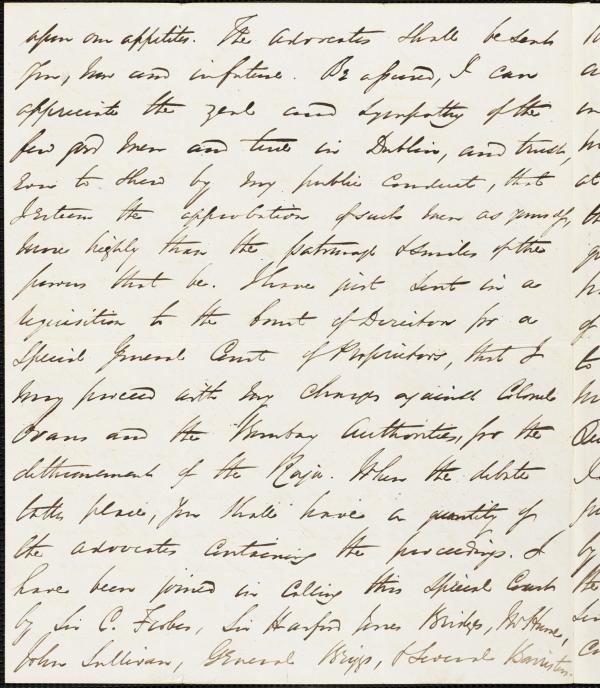 upon our appetites. The advocates shall be sent
you, now and in future. Be assured, I can
appreciate the zeal and sympathy of the
few good men and true in Dublin, and trust,
ever to shew by my public conduct, that
I esteem the approbation of such men as yourself,
more highly than the patronage & smiles of the
powers that be. I have just sent in a
requisition to the Court of Directors for a
Special General Court of Proprietors, that I
may proceed with my charges against Colonel
Ovans and the Bombay Authorities, for the
dethronement of the Raja. When the debate
takes place, you shall have a quantity of
the advocates containing the proceedings. I
have been joined in calling this Special Court
by Sir C. Forbes, Sir Harford Jones Bridges, Mr Hume,
John Sullivan, General Briggs, & several Barristers.